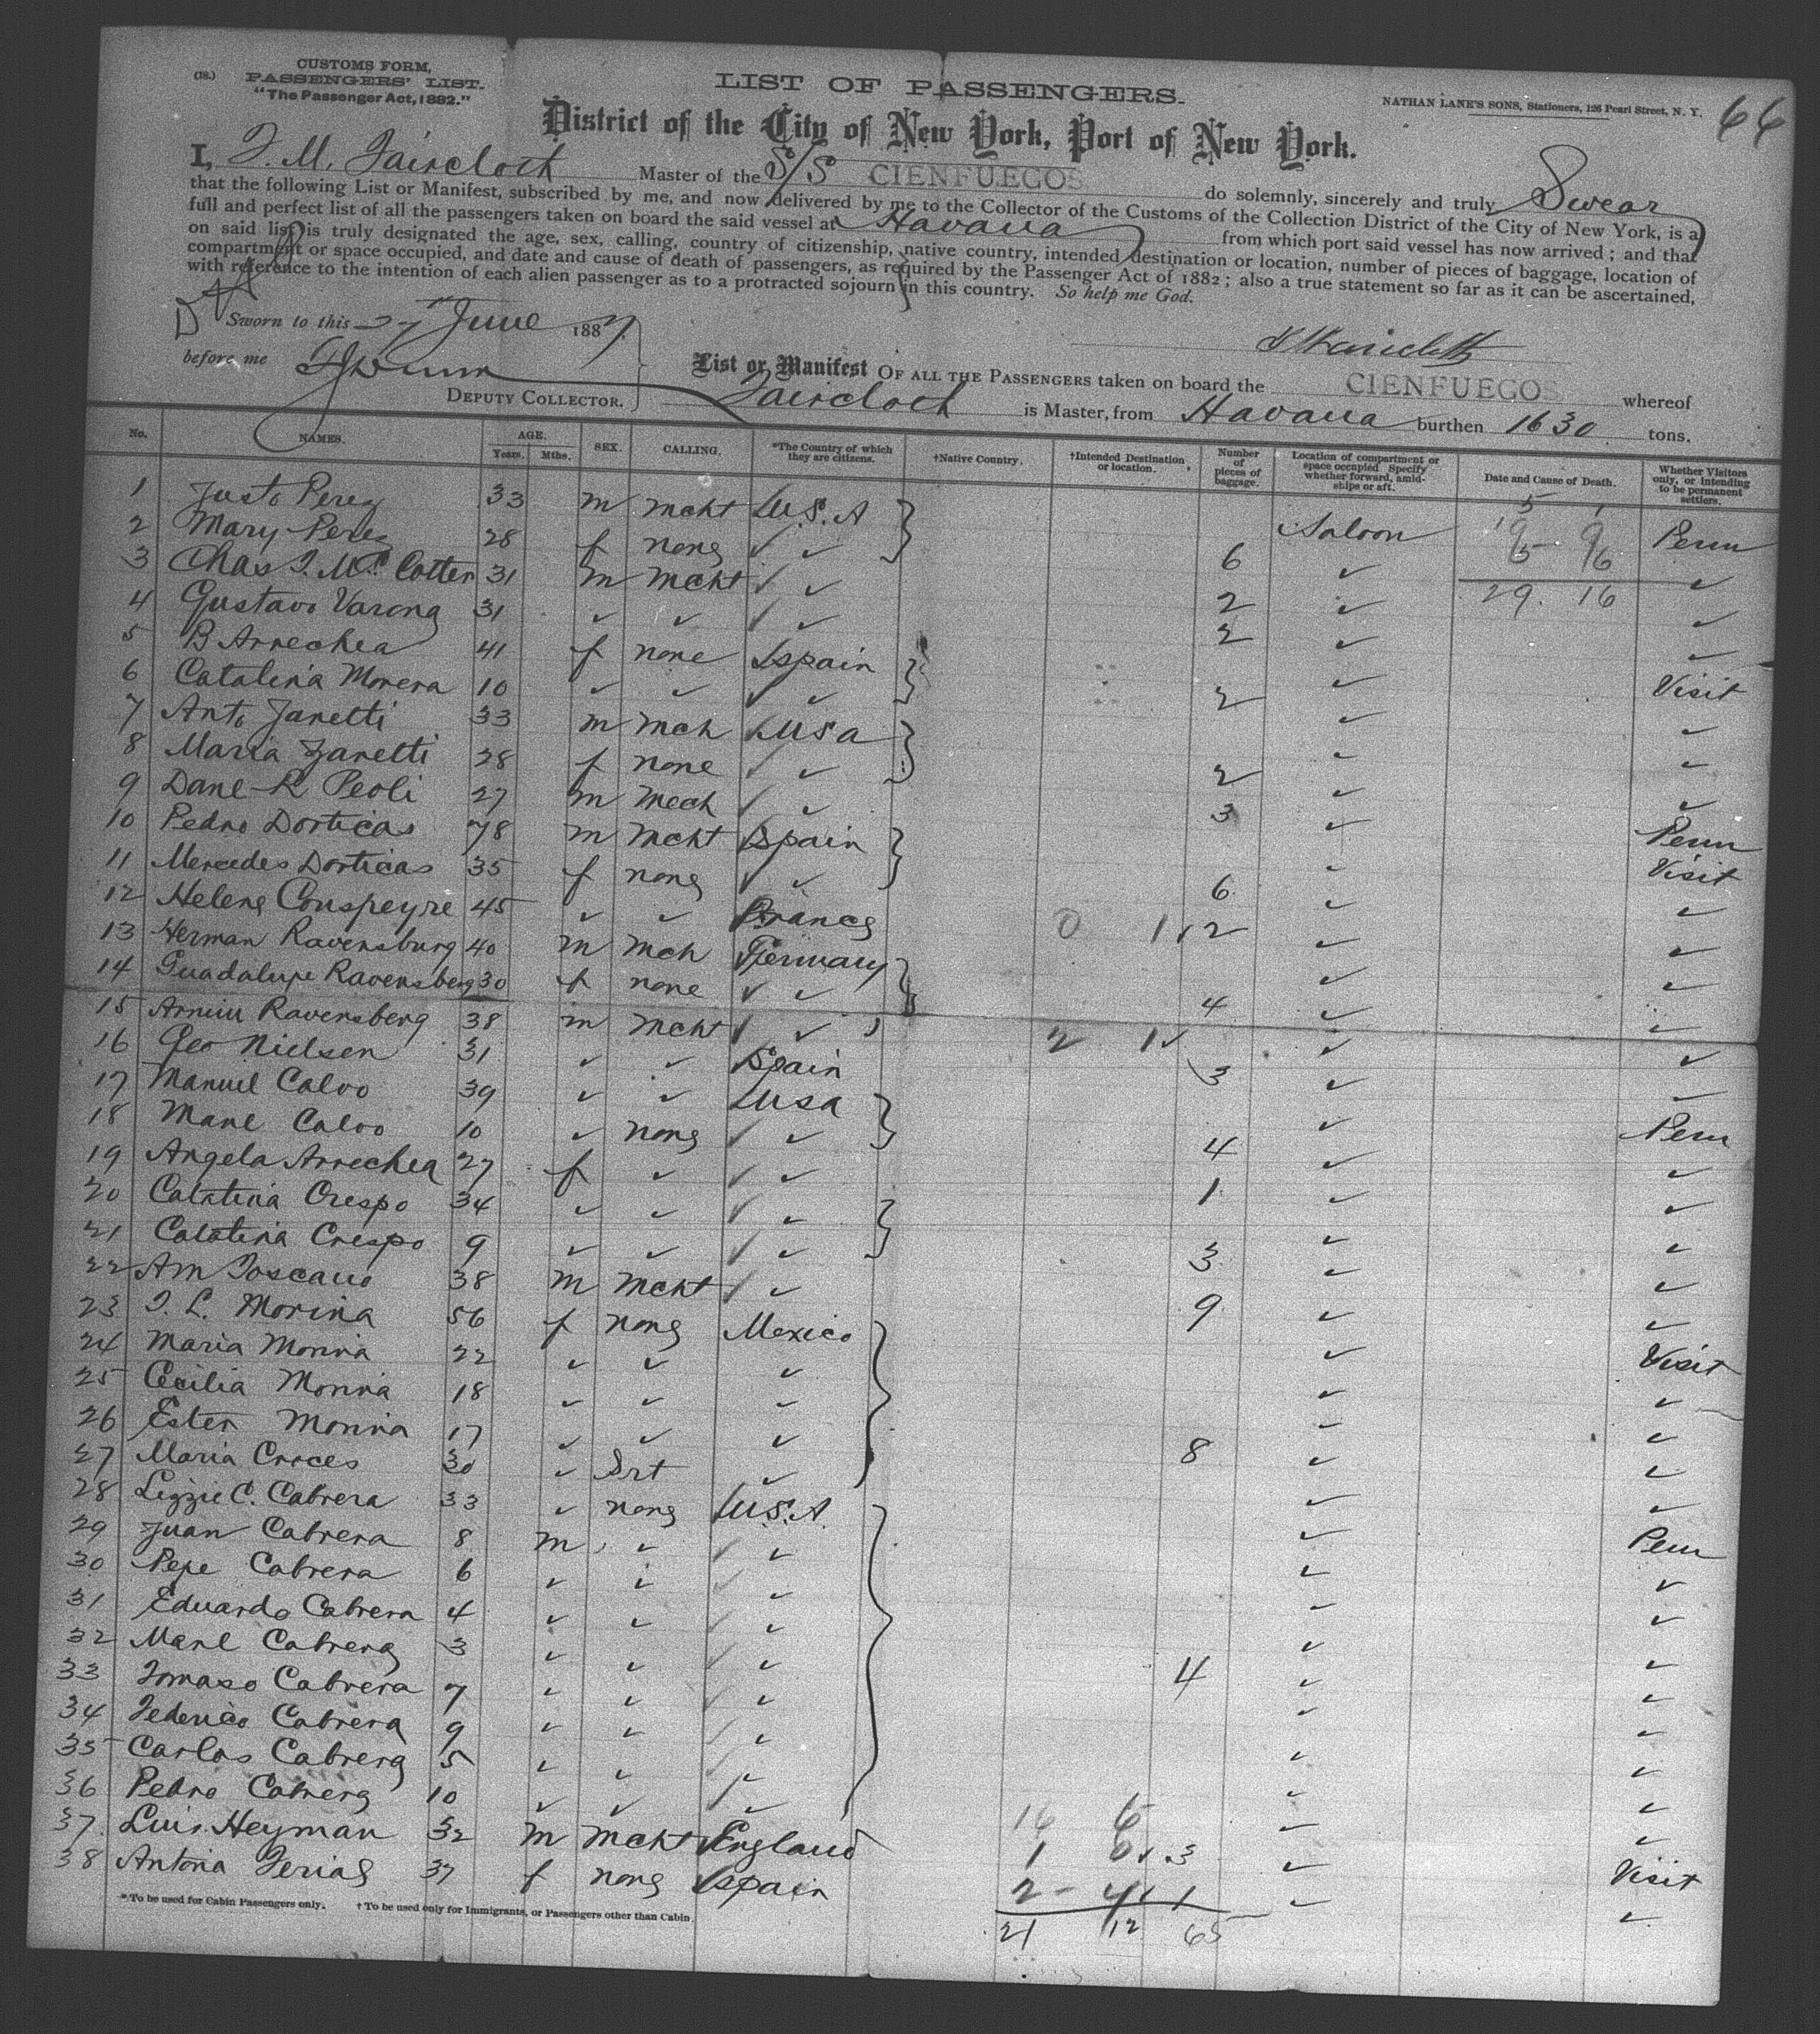 CUSTOMS FORM,
(18.) PASSENGERS' LIST.
"The Passenger Act, 1882."
LIST OF PASSENGERS.
NATHAN LANE'S SONS, Stationers, 126 Pearl Street, N. Y.
66
District of the City of New York, Port of New York.
I, F. M. Faircloth Master of the S/S CIENFUEGOS do solemnly, sincerely and truly Swear
that the following List or Manifest, subscribed by me, and now delivered by me to the Collector of the Customs of the Collection District of the City of New York, is a
full and perfect list of all the passengers taken on board the said vessel at Havana from which port said vessel has now arrived; and that
on said list is truly designated the age, sex, calling, country of citizenship, native country, intended destination or location, number of pieces of baggage, location of
compartment or space occupied, and date and cause of death of passengers, as required by the Passenger Act of 1882; also a true statement so far as it can be ascertained,
with reference to the intention of each alien passenger as to a protracted sojourn in this country. So help me God.
Sworn to this 27 June 1887
before me
DEPUTY COLLECTOR.
List or Manifest OF ALL THE PASSENGERS taken on board the CIENFUEGOS whereof
Faircloth is Master, from Havana burthen 1630 tons.
No. NAMES. AGE. Years. Mths. SEX. CALLING. *The Country of which they are citizens. †Native Country. †Intended Destination or location. Number of pieces of baggage. Location of compartment or space occupied Specify whether forward, amidships or aft. Date and Cause of Death. Whether Visitors only, or intending to be permanent settlers.
1 Justo Perez 33 m mcht U.S.A Saloon Perm
2 Mary Perez 28 f none ✓ ✓ 6 ✓ ✓
3 Chas T. McCotter 31 m mcht ✓ ✓ 2 ✓ 29 16 ✓
4 Gustavo Varona 31 ✓ ✓ ✓ ✓ 2 ✓ ✓
5 B Arrechea 41 f none Spain ✓ Visit
6 Catalina Morera 10 ✓ ✓ ✓ ✓ 2 ✓ ✓
7 Anto Zanetti 33 m mch USa ✓ ✓
8 Maria Zanetti 28 f none ✓ ✓ 2 ✓ ✓
9 Danl R Peoli 27 m mech ✓ ✓ 3 ✓ Perm
10 Pedro Dorticas 78 m mcht Spain ✓ Visit
11 Mercedes Dorticas 35 f none ✓ ✓ 6 ✓ ✓
12 Helene Couspeyre 45 ✓ ✓ France 0 1 2 ✓ ✓
13 Herman Ravensburg 40 m mch Germany ✓ ✓
14 Guadalupe Ravensberg 30 f none ✓ ✓ 4 ✓ ✓
15 Armin Ravensberg 38 m mcht ✓ ✓ 2 1 ✓ ✓
16 Geo Nielsen 31 ✓ ✓ Spain 3 ✓ ✓
17 Manuel Calvo 39 ✓ ✓ USa ✓ Perm
18 Manl Calvo 10 ✓ none ✓ ✓ 4 ✓ ✓
19 Angela Arrechea 27 f ✓ ✓ ✓ 1 ✓ ✓
20 Catatina Crespo 34 ✓ ✓ ✓ ✓ ✓ ✓
21 Catatina Crespo 9 ✓ ✓ ✓ ✓ 3 ✓ ✓
22 Am Toscano 38 m mcht ✓ ✓ 9 ✓ ✓
23 T. L. Morina 56 f none Mexico ✓ Visit
24 Maria Morina 22 ✓ ✓ ✓ ✓ ✓
25 Cecilia Morina 18 ✓ ✓ ✓ ✓ ✓
26 Ester Morina 17 ✓ ✓ ✓ 8 ✓ ✓
27 Maria Croces 30 ✓ Srt ✓ ✓ ✓
28 Lizzie C. Cabrera 33 ✓ none U.S.A ✓ Perm
29 Juan Cabrera 8 m ✓ ✓ ✓ ✓ ✓
30 Pepe Cabrera 6 ✓ ✓ ✓ ✓ ✓ ✓
31 Eduardo Cabrera 4 ✓ ✓ ✓ ✓ ✓ ✓
32 Manl Cabrera 3 ✓ ✓ ✓ ✓ 4 ✓ ✓
33 Tomaso Cabrera 7 ✓ ✓ ✓ ✓ ✓ ✓
34 Federico Cabrera 9 ✓ ✓ ✓ ✓ ✓ ✓
35 Carlos Cabrera 5 ✓ ✓ ✓ ✓ ✓ ✓
36 Pedro Cabrera 10 ✓ ✓ ✓ ✓ 16 6 ✓ ✓
37 Luis Heyman 32 m mcht England 1 3 ✓ Visit
38 Antonia Ferias 37 f none Spain 2 1 ✓ ✓
21 12 65
* To be used for Cabin Passengers only. † To be used only for Immigrants, or Passengers other than Cabin.